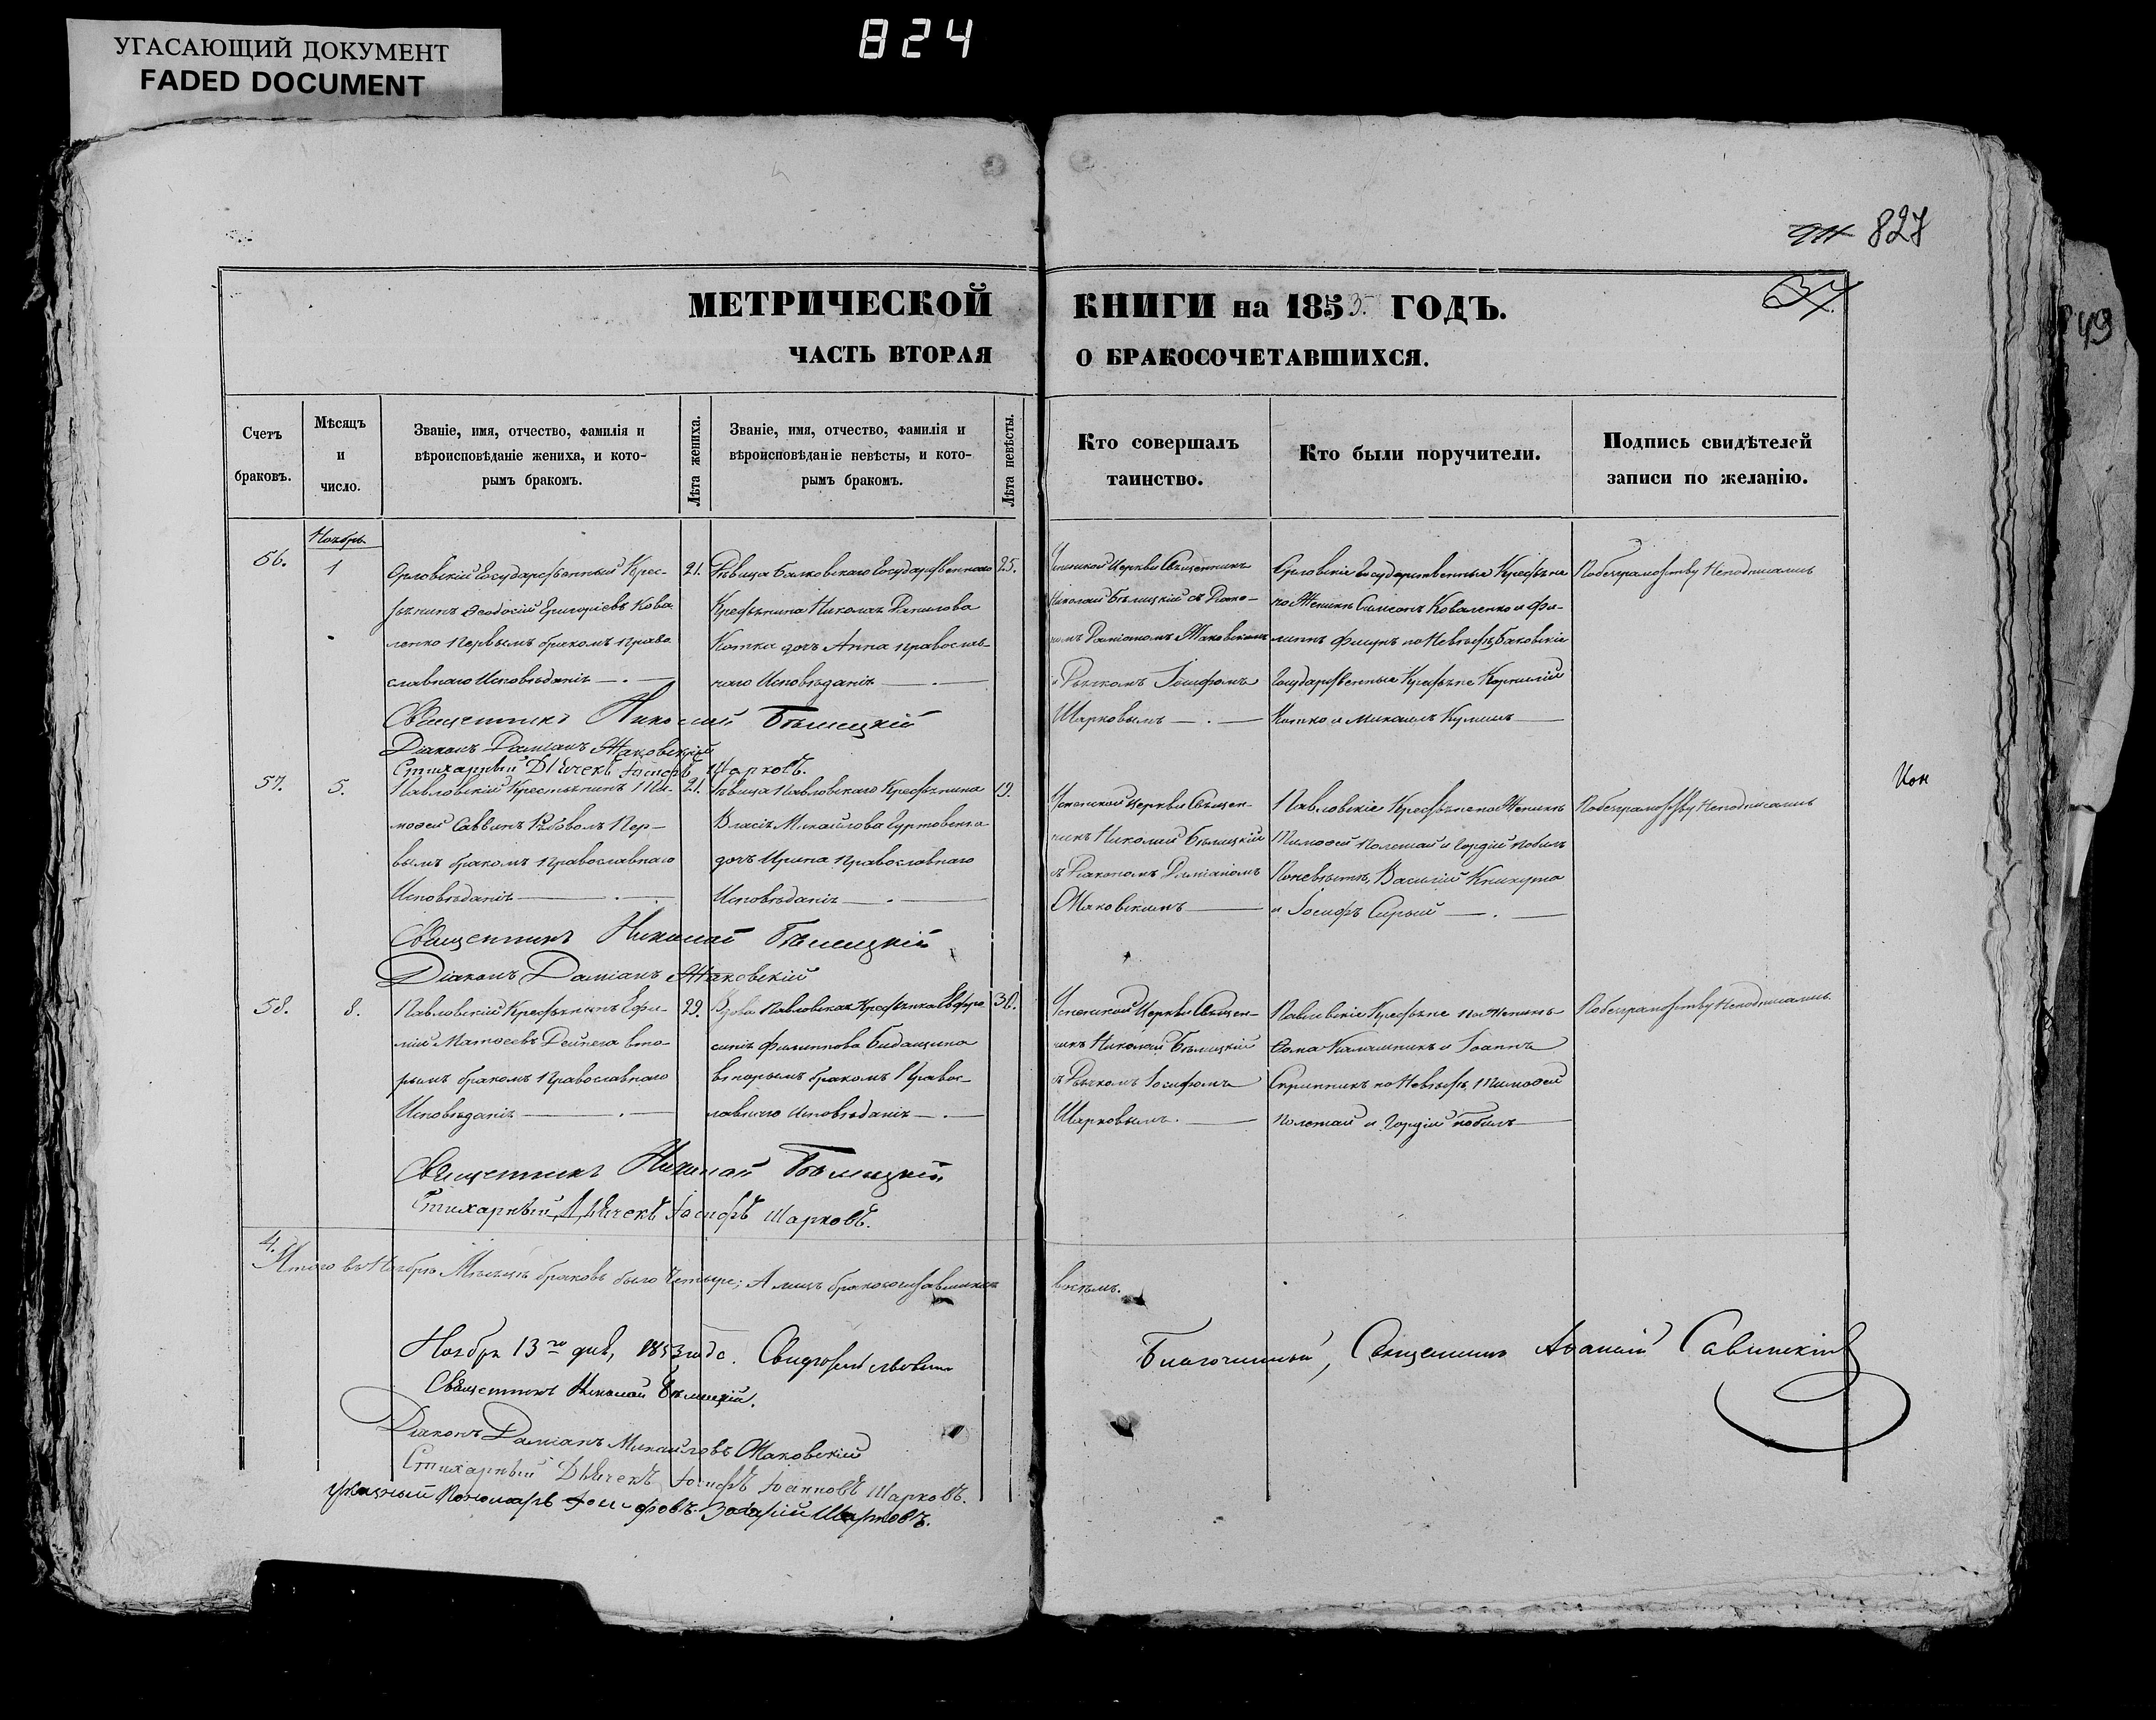 УГАСАЮЩИЙ ДОКУМЕНТ
FADED DOCUMENT
824
827
37.
49
МЕТРИЧЕСКОЙ КНИГИ на 1853 ГОДЪ.
ЧАСТЬ ВТОРАЯ О БРАКОСОЧЕТАВШИХСЯ.
Счетъ
браковъ.
Мѣсяцъ
и
число.
Званіе, имя, отчество, фамилія и
вѣроисповѣданіе жениха, и кото-
рымъ бракомъ.
Лѣта жениха.
Званіе, имя, отчество, фамилія и
вѣроисповѣданіе невѣсты, и кото-
рымъ бракомъ.
Лѣта невѣсты.
Кто совершалъ
таинство.
Кто были поручители.
Подпись свидѣтелей
записи по желанію.
Ноябрь
56.
1
Орловскій Государственный Крес-
тьянинъ Ѳеодосій Григоріевъ Кова
ленко Первымъ бракомъ право
славнаго Исповѣданія
21.
Дѣвица Балковскаго Государственнаго
Крестьянина Николая Данилова
Котка дочь Анна православ-
наго Исповѣданія
25.
Успенской Церкви Священникъ
Николай Бѣлицкій съ Діако-
номъ Даміаномъ Жаковскимъ
и Дьячкомъ Іосифомъ
Шарковымъ
Орловскіе Государственные Крестьяне
по Женихѣ Симеонъ Коваленко и Фи-
липпъ по Невѣстѣ
Государственные Крестьяне Корнилій
Котко и Михаилъ
Побезграмотству Неподписались
Священникъ Николай Бѣлицкій
Діаконъ Даміанъ Жаковскій
Стихарный Дьячекъ Іосифъ Шарковъ.
57.
5.
Павловскій Крестьянинъ Ти-
моѳей Саввинъ Рѣзволъ Пер-
вымъ бракомъ Православнаго
Исповѣданія
21.
Дѣвица Павловскаго Крестьянина
Власія Михайлова Гуртовенка
дочь Ирина Православнаго
Исповѣданія
19.
Успенской Церкви Священ-
никъ Николай Бѣлицкій
съ Діакономъ Даміаномъ
Жаковскимъ
Павловскіе Крестьяне по Женихѣ
Тимоѳей Полетай и Гордій
Поневѣстѣ, Василій
и Іосифъ Сирый
Побезграмотству Неподписались
Священникъ Николай Бѣлицкій
Діаконъ Даміанъ Жаковскій
58.
8.
Павловскій Крестьянинъ Ефи-
мій Матѳеевъ Дейнега вто-
рымъ бракомъ Православнаго
Исповѣданія
29.
Вдова Павловская Крестьянка Евфро
синія Филиппова
вторымъ бракомъ Правос-
лавнаго Исповѣданія
30.
Успенской Церкви Священ-
никъ Николай Бѣлицкій
съ Дьячкомъ Іосифомъ
Шарковымъ.
Павловскіе Крестьяне по Женихѣ
Ѳома Калашникъ и Іоаннъ
Скрипникъ по Невѣстѣ, Тимоѳей
Полетай и Гордій
Побезграмотству Неподписались.
Священникъ Николай Бѣлицкій
Стихарный Дьячекъ Іосифъ Шарковъ.
4.
Итого въ Ноябрѣ Мѣсяцѣ браковъ было Четыре; А лицъ бракосочетавшихся восемь.
Ноября 13го дня, 1853 года. Свидѣтельствовалъ
Благочинный, Священникъ Савинскій
Священникъ Николай Бѣлицкій.
Діаконъ Даміанъ Михайловъ Жаковскій
Стихарный Дьячекъ Іосифъ Іоанновъ Шарковъ.
Указный Пономарь Іосифовъ Захарій Шарковъ.